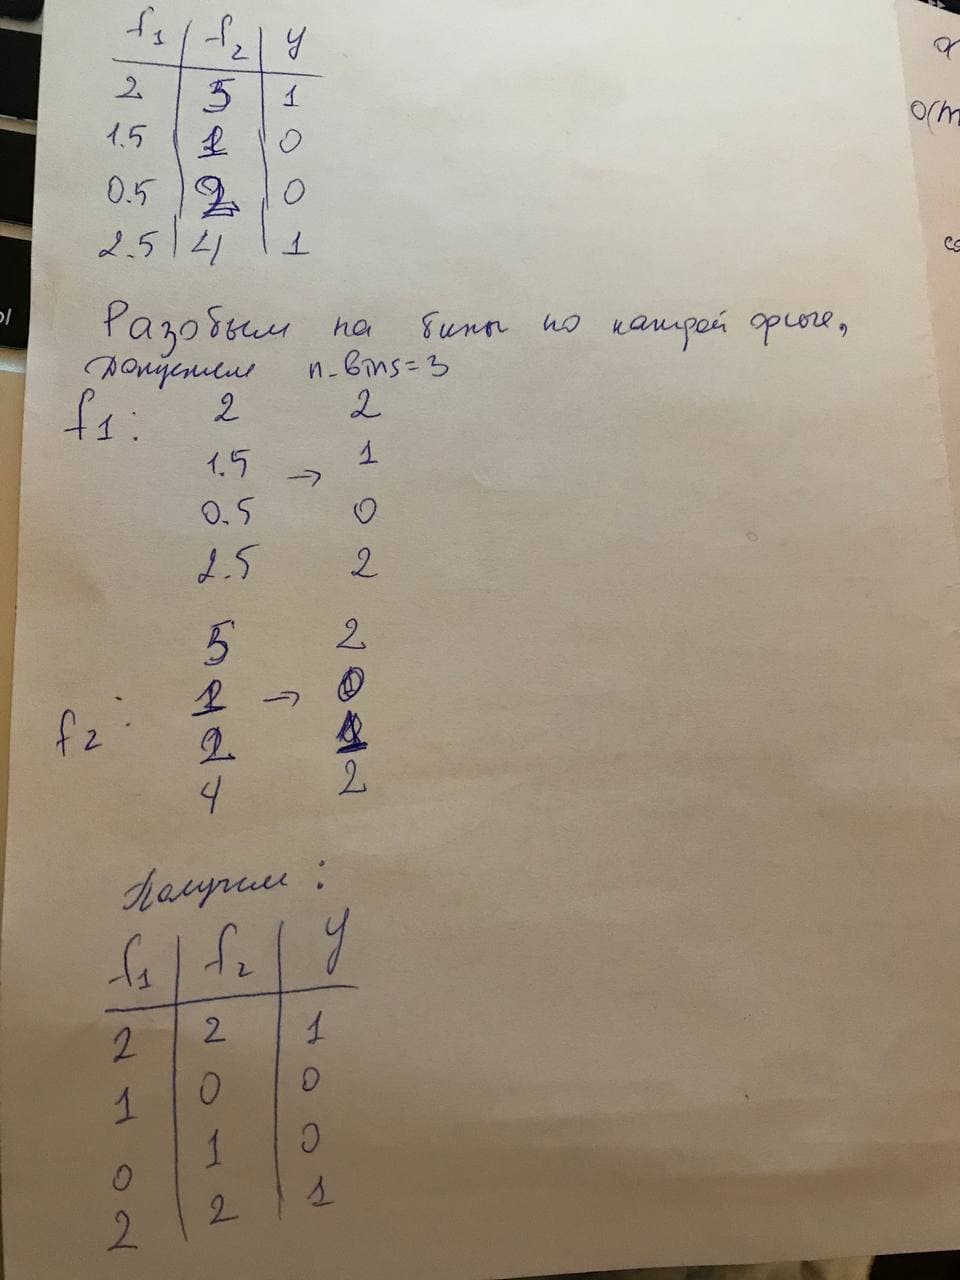 f1 f2 y
2 5 1
1.5 1 0
0.5 2 0
2.5 4 1
Разобьём на бины по каждой фиче,
Допустим n_bins=3
f1:
2 2
1.5 → 1
0.5 0
2.5 2
f2:
5 2
1 → 0
2 1
4 2
Получим:
f1 f2 y
2 2 1
1 0 0
0 1 0
2 2 1
O(m